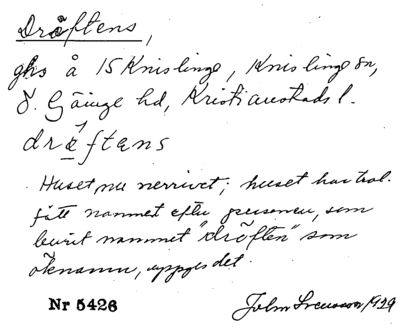 Dräftens,
ghs å 15 Knislinge, Knislinge sn,
Ö. Göinge hd, Kristianstads l.
dräftens
Huset nu nerrivet; huset har trol.
fått namnet efter personen, som
burit namnet "dröften" som
öknamn, uppges det.
Nr 5426
John Svensson 1929